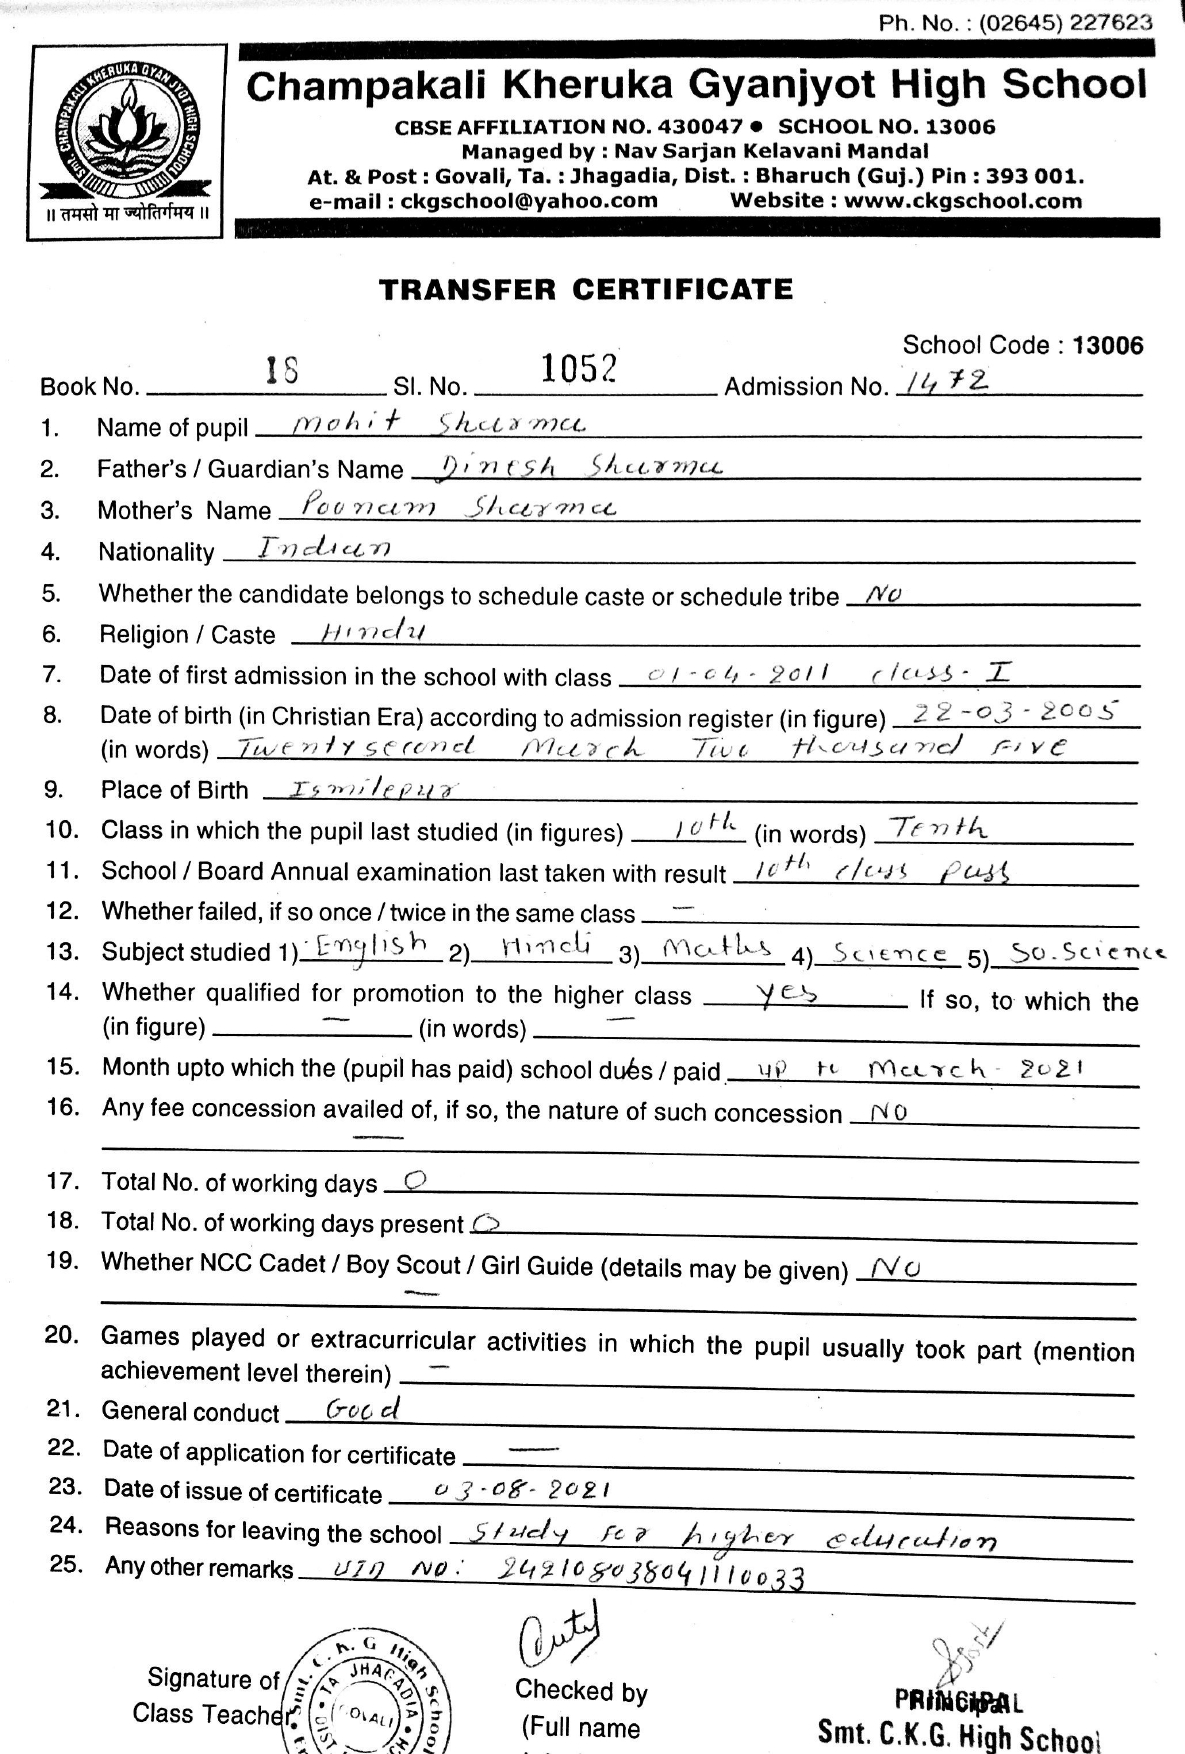 Ph. No. : (02645) 227623
Smt. CHAMPAKALI KHERUKA GYANJYOT HIGH SCHOOL
|| तमसो मा ज्योतिर्गमय ||
Champakali Kheruka Gyanjyot High School
CBSE AFFILIATION NO. 430047 ● SCHOOL NO. 13006
Managed by : Nav Sarjan Kelavani Mandal
At. & Post : Govali, Ta. : Jhagadia, Dist. : Bharuch (Guj.) Pin : 393 001.
e-mail : ckgschool@yahoo.com Website : www.ckgschool.com
TRANSFER CERTIFICATE
School Code : 13006
Book No. 18 Sl. No. 1052 Admission No. 1472
1. Name of pupil Mohit Sharma
2. Father's / Guardian's Name Dinesh Sharma
3. Mother's Name Poonam Sharma
4. Nationality Indian
5. Whether the candidate belongs to schedule caste or schedule tribe No
6. Religion / Caste Hindu
7. Date of first admission in the school with class 01-04-2011 class-I
8. Date of birth (in Christian Era) according to admission register (in figure) 22-03-2005
(in words) Twenty second March Two thousand Five
9. Place of Birth Ismilepur
10. Class in which the pupil last studied (in figures) 10th (in words) Tenth
11. School / Board Annual examination last taken with result 10th class pass
12. Whether failed, if so once / twice in the same class —
13. Subject studied 1) English 2) Hindi 3) Maths 4) Science 5) So.Science
14. Whether qualified for promotion to the higher class yes If so, to which the
(in figure) — (in words) —
15. Month upto which the (pupil has paid) school dues / paid up to March-2021
16. Any fee concession availed of, if so, the nature of such concession NO
—
17. Total No. of working days 0
18. Total No. of working days present 0
19. Whether NCC Cadet / Boy Scout / Girl Guide (details may be given) No
—
20. Games played or extracurricular activities in which the pupil usually took part (mention
achievement level therein) —
21. General conduct Good
22. Date of application for certificate —
23. Date of issue of certificate 03-08-2021
24. Reasons for leaving the school study for higher education
25. Any other remarks UID NO: 242108038041110033
Smt. C. K. G High School
TA JHAGADIA
GOVALI
DIST
Signature of
Class Teacher
Checked by
(Full name
PRINCIPAL
Smt. C.K.G. High School